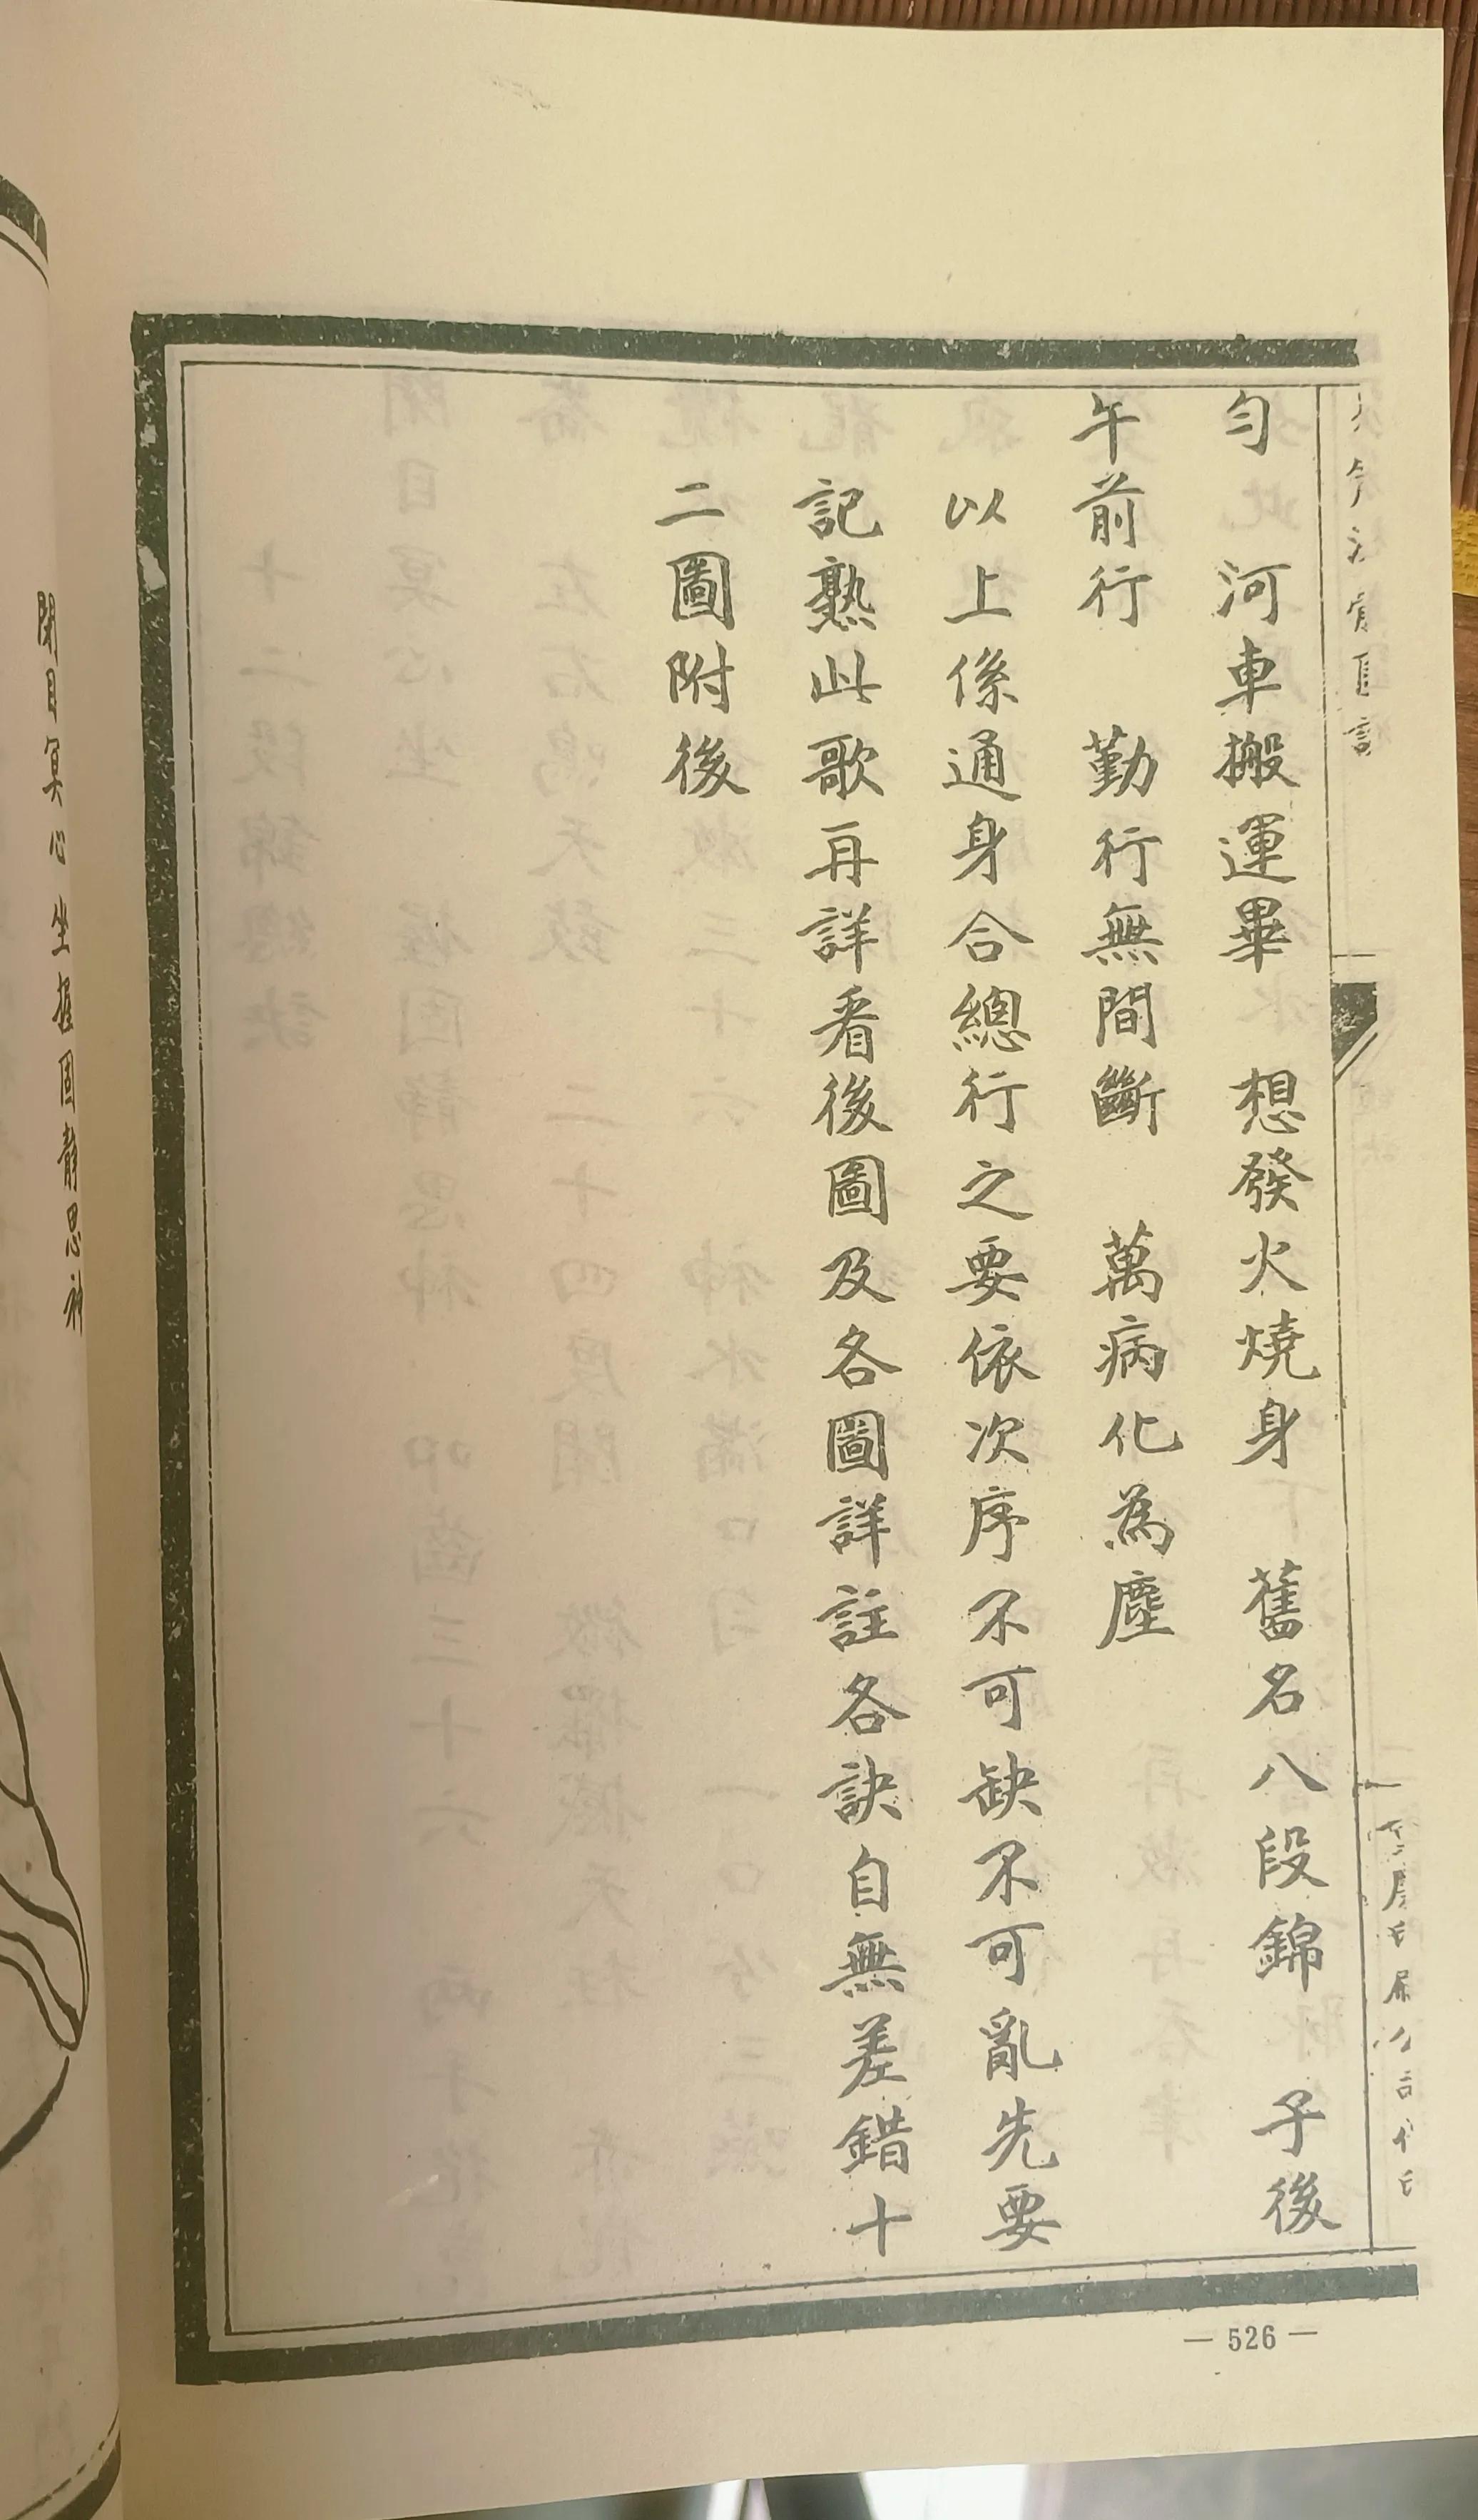 匀　河車搬運畢　想發火燒身　舊名八段錦　子後
午前行　勤行無間斷　萬病化為塵
以上係通身合總行之要依次序不可缺不可亂先要
記熟此歌再詳看後圖及各圖詳註各訣自無差錯十
二圖附後
— 526 —
閉目冥心坐握固靜思神